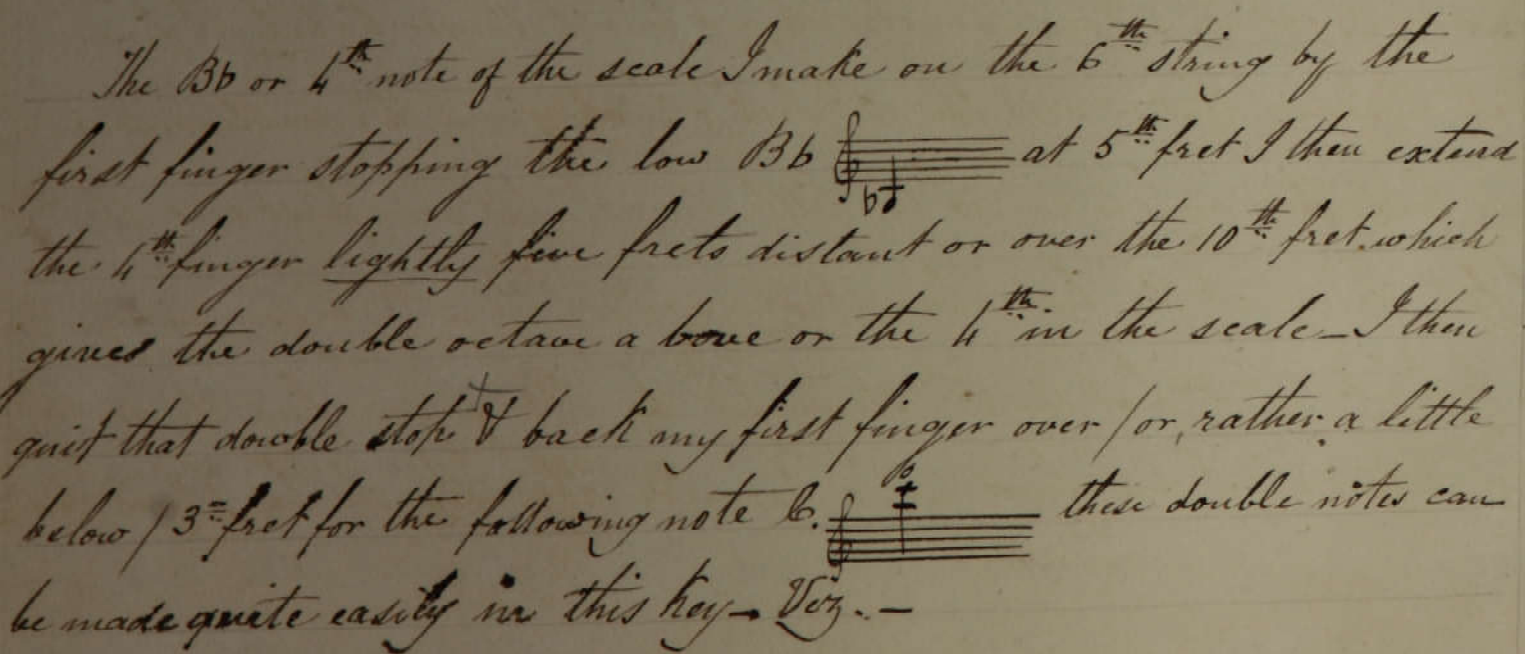 The Bb or 4th note of the scale I make on the 6th string by the
first finger stopping the low Bb at 5th fret I then extend
the 4th finger lightly five frets distant or over the 10th fret which
gives the double octave above or the 4th in the scale – I then
quit that double stop + & back my first finger over / or rather a little
below / 3 fret for the following note C. these double notes can
be made quite easily in this key – Viz. –